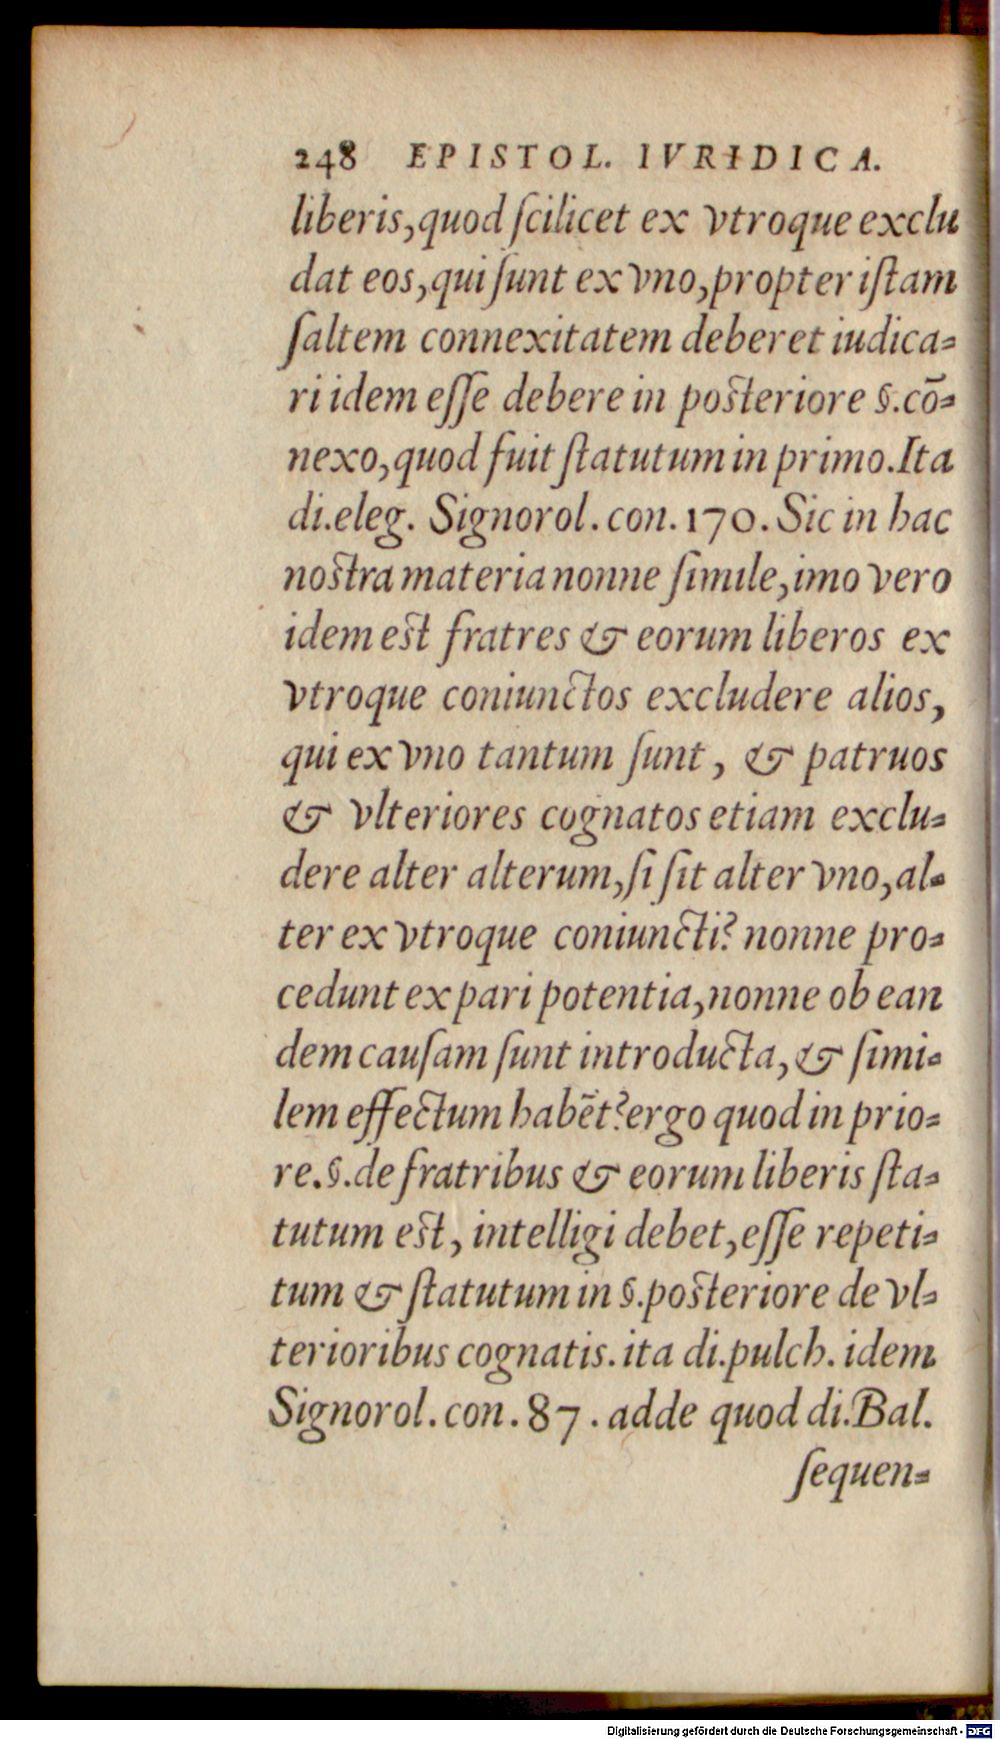 248 EPISTOL. IVRIDICA.
liberis,quod ſcilicet ex vtroque exclu
dat eos,qui ſunt ex vno,propter iſtam
ſaltem connexitatem deberet iudica-
ri idem eſſe debere in posteriore §.cō-
nexo,quod fuit ſtatutum in primo.Ita
di.eleg. Signorol. con. 170. Sic in hac
nostra materia nonne ſimile,imo vero
idem est fratres & eorum liberos ex
vtroque coniunctos excludere alios,
qui ex vno tantum ſunt, & patruos
& vlteriores cognatos etiam exclu-
dere alter alterum,ſi ſit alter vno,al-
ter ex vtroque coniuncti? nonne pro-
cedunt ex pari potentia,nonne ob ean
dem cauſam ſunt introducta,& ſimi-
lem effectum habēt?ergo quod in prio-
re.§.de fratribus & eorum liberis ſta-
tutum est, intelligi debet,eſſe repeti-
tum & ſtatutum in §.posteriore de vl-
terioribus cognatis. ita di.pulch. idem
Signorol. con. 87. adde quod di.Bal.
ſequen-
Digitalisierung gefördert durch die Deutsche Forschungsgemeinschaft - DFG